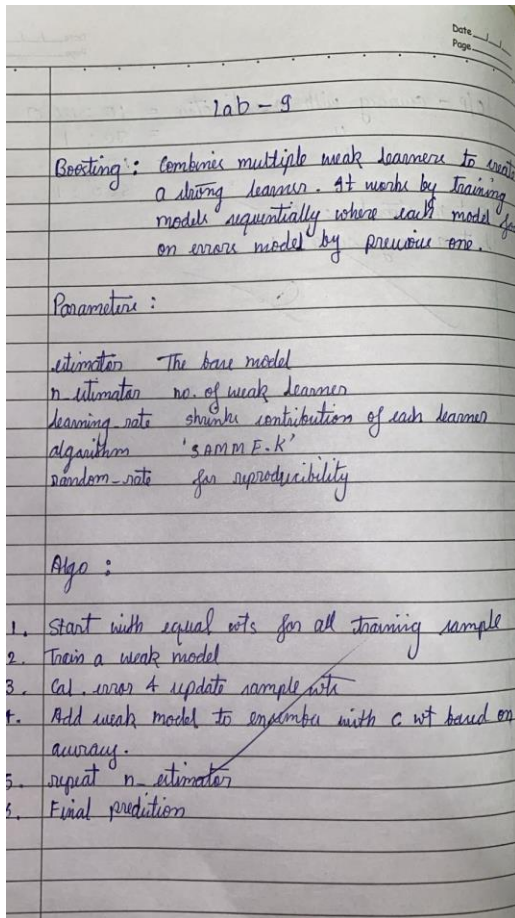 Date
Page
Lab - 9
Boosting : Combines multiple weak learners to creat
a strong learner. It works by training
models sequentially where each model fo
on errors model by previous one.
Parameters :
estimator The base model
n_estimator no. of weak learner
learning_rate shrinks contribution of each learner
algorithm 'SAMME.R'
random_rate for reproducibility
Algo :
1. Start with equal wts for all training sample
2. Train a weak model
3. Cal. error & update sample wts
4. Add weak model to with c wt based on
accuracy.
5. repeat n_estimator
6. Final prediction